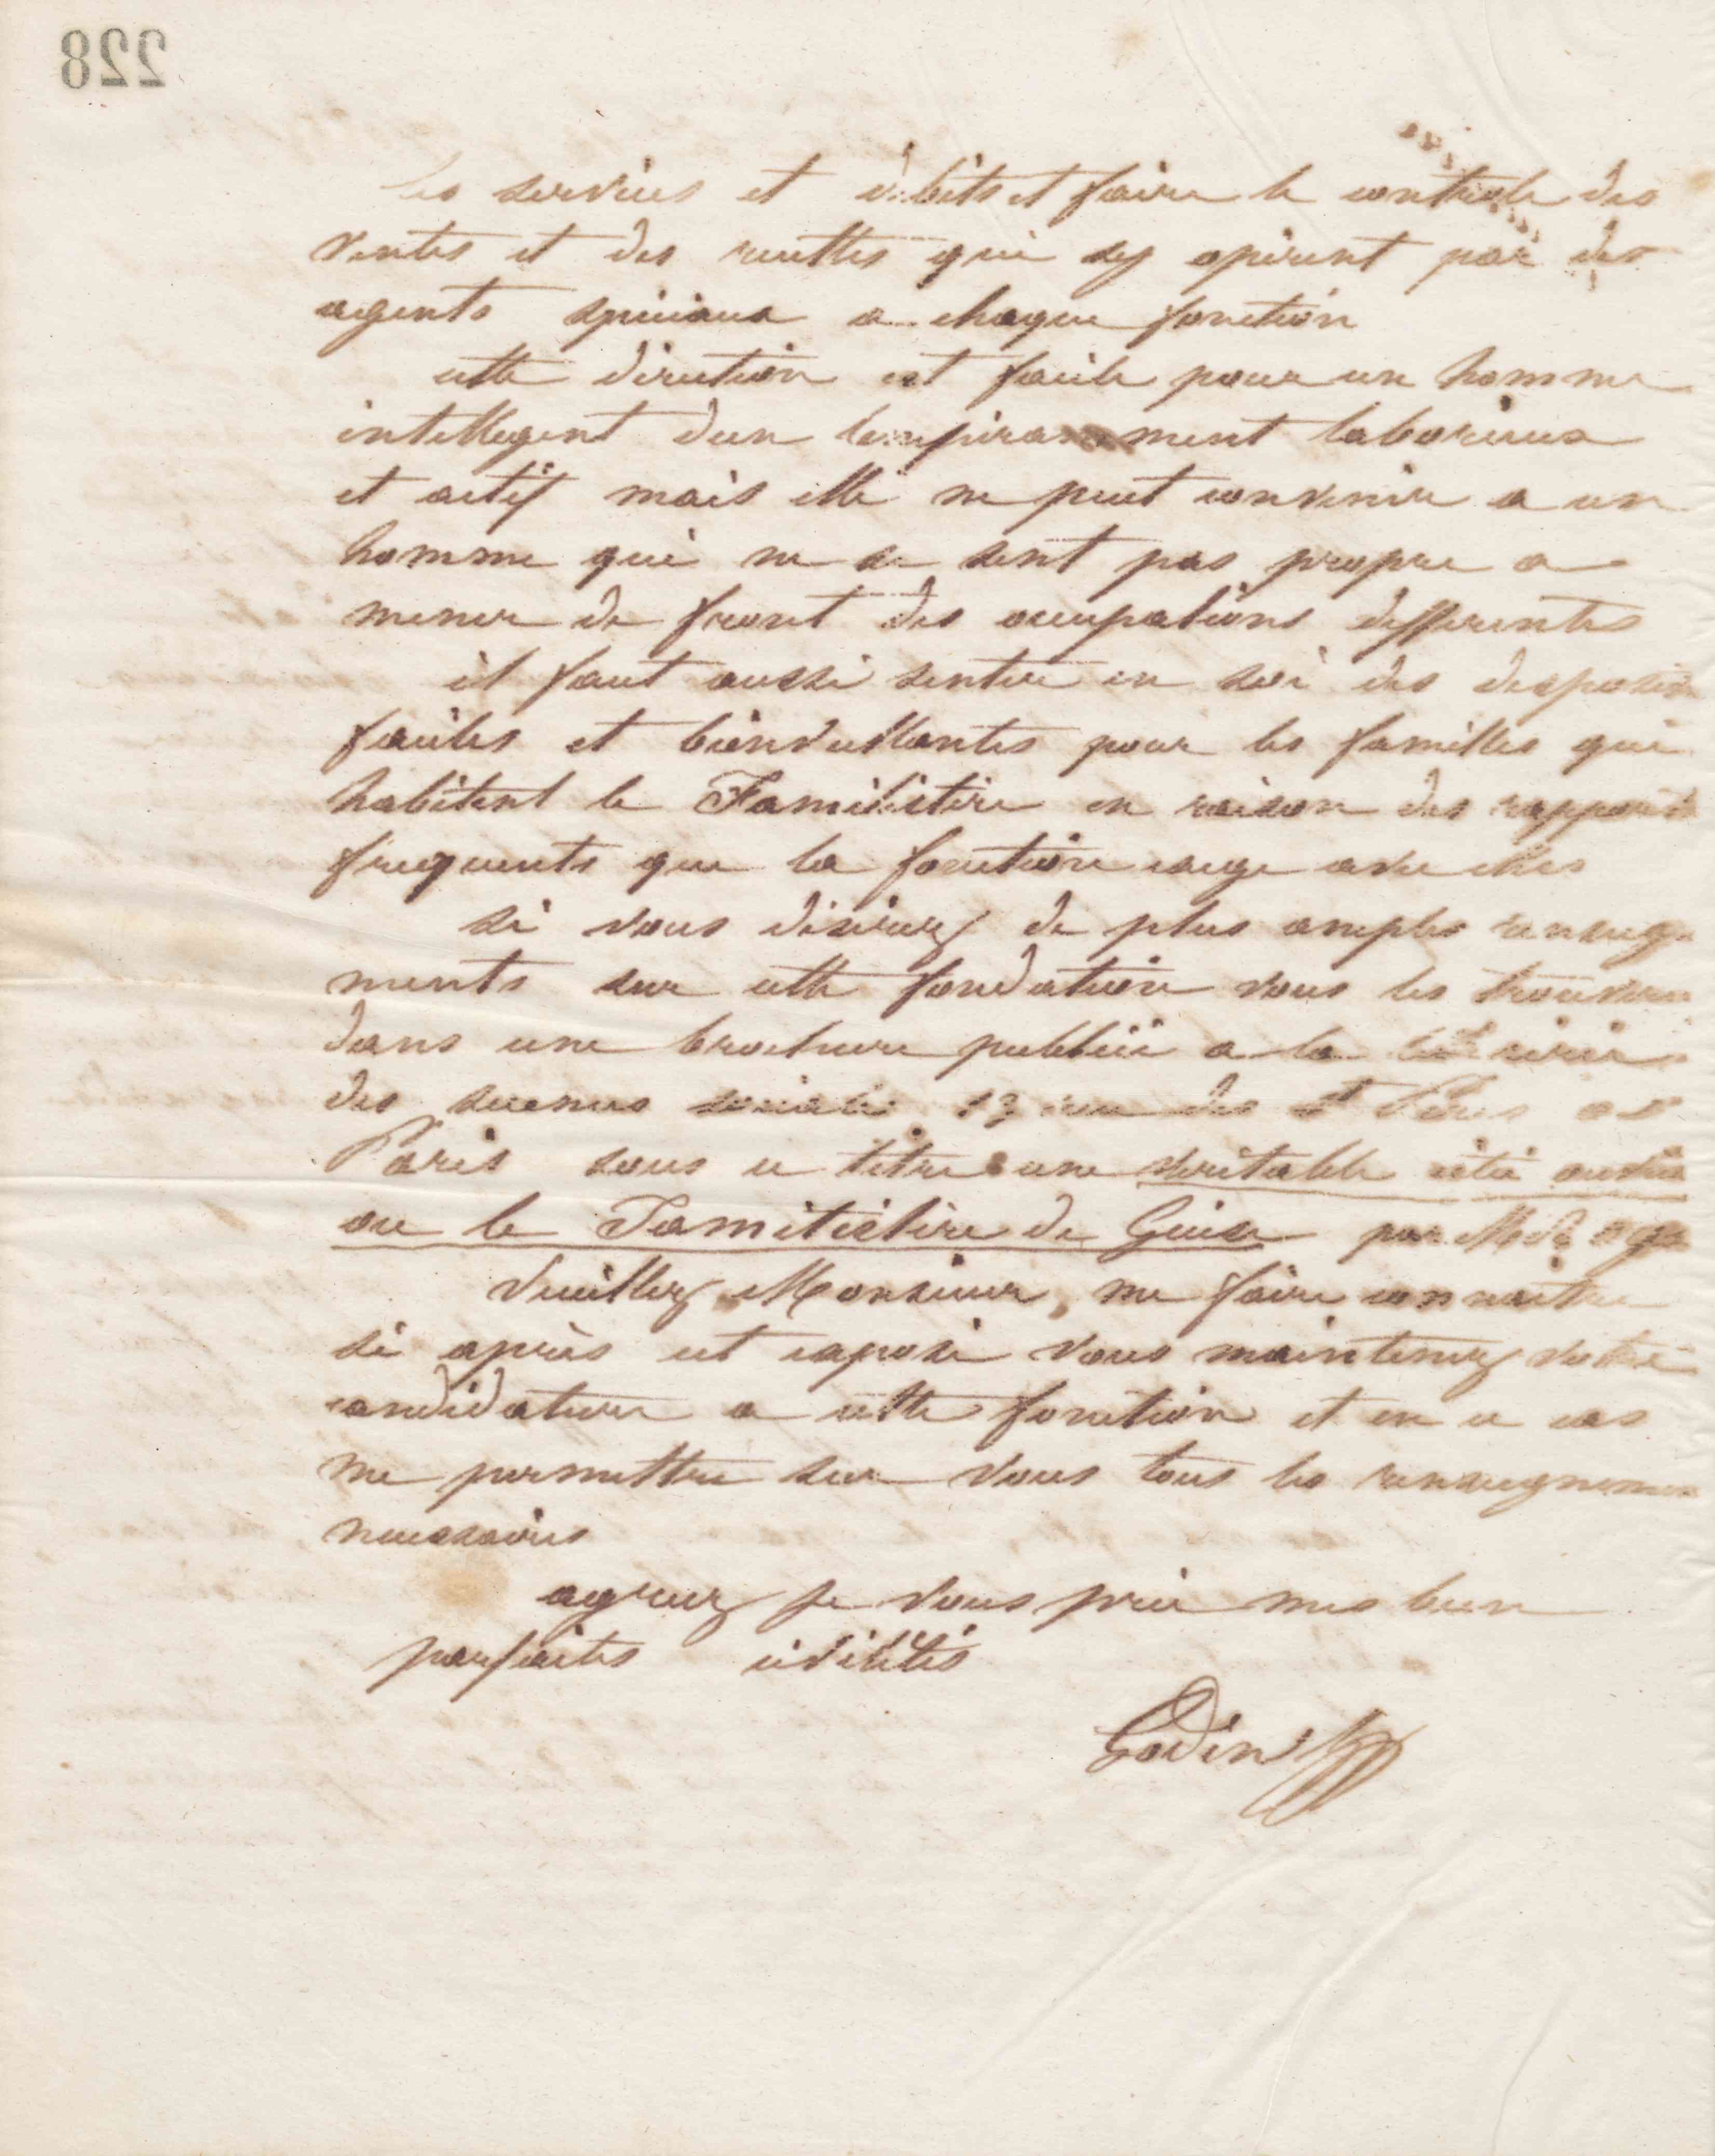 228
les services et débits et faire le controle des
ventes et des recettes qui sy opèrent par des
agents speciaux a chaque fonction
cette direction est facile pour un homme
intelligent d'un temperamment laborieux
et actif mais elle ne peut convenir a un
homme qui ne se sent pas propre a
mener de front des occupations differentes
il faut aussi sentir en soi des disposition
faciles et bienveillantes pour les familles qui
habitent le Familistère en raison des rapports
frequents que la fonction exige avec elles
si vous désirez de plus amples renseigne
ments sur cette fondation vous les trouverez
dans une brochure publiée a la librairie
des sciences sociales 13 rue des St Pères a
Paris sous ce titre une veritable cité ouvrière
ou le Familistère de Guise par M.
Veuillez, Monsieur, me faire connaitre
si après cet exposé vous maintenez votre
candidature a cette fonction et en ce cas
me permettre sur vous tous les renseignemen
necessaires
agreez je vous prie mes bien
parfaites civilités
Godin